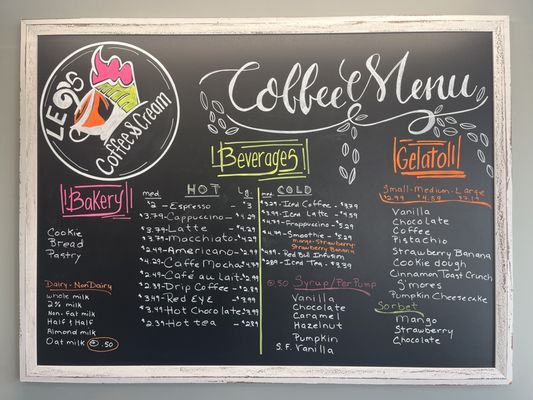 LE 26
Coffee & Cream
Coffee Menu
!!Bakery!!
Cookie
Bread
Pastry
Dairy - Non Dairy
whole milk
2% milk
Non-fat milk
Half & Half
Almond milk
Oat milk .50
!Beverages!
med. HOT Lg.
$2 - Espresso - $3
$3.79 - Cappuccino - $4.29
$3.79 - Latte - $4.29
$3.79 - Macchiato - $4.29
$2.49 - Americano - $2.99
$4.29 - Caffe Mocha
$2.49 - Café au lait - $2.99
$2.39 - Drip Coffee - $2.89
Red EYE - $3.99
$3.49 - Hot Chocolate $3.99
$2.39 - Hot tea - $2.89
med COLD Lg.
$3.29 - Iced Coffee - $3.79
$3.99 - Iced Latte - $4.59
$4.79 - Frappuccino - $5.29
$4.79 - Smoothie - $5.29
Mango - Strawberry -
Strawberry Banana
Red Bull Infusion
$2.89 - Iced Tea - $3.39
.50 Syrup/Per Pump
Vanilla
Chocolate
Caramel
Hazelnut
Pumpkin
S.F. Vanilla
Gelato!!
Small - Medium - Large
$2.99 $4.59
Vanilla
Chocolate
Coffee
Pistachio
Strawberry Banana
Cookie dough
Cinnamon Toast Crunch
S'mores
Pumpkin Cheesecake
Sorbet
Mango
Strawberry
Chocolate